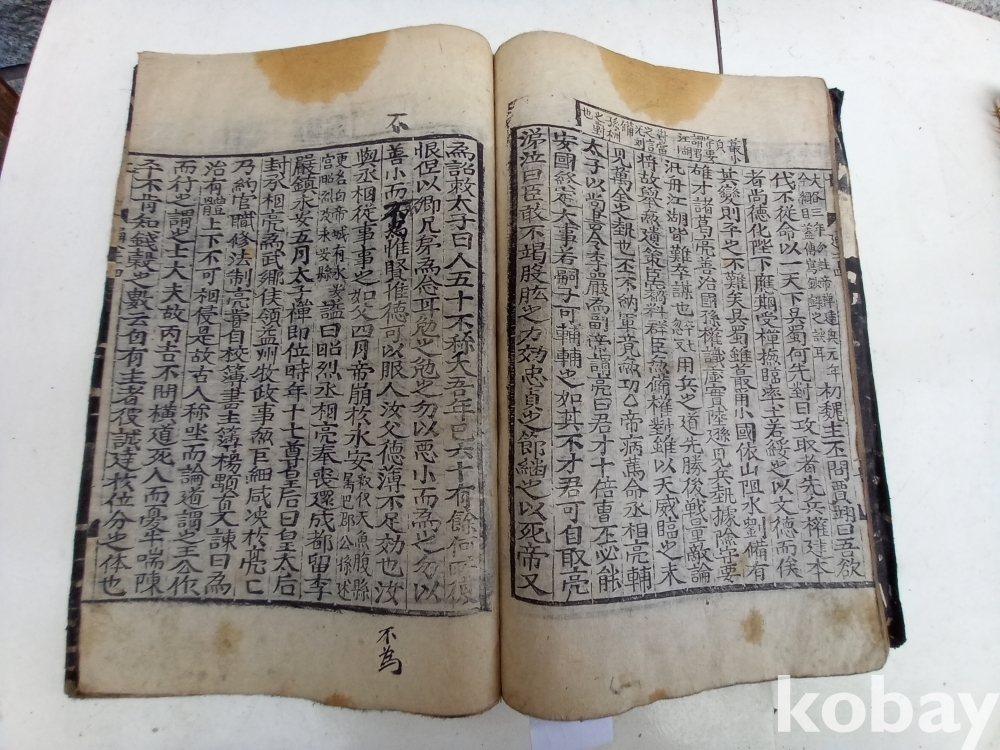 初魏主丕問賈詡曰吾欲
伐不從命以一天下吳蜀何先對曰攻取者先兵權建本
者尚德化陛下應期受禪撫臨率土若綏之以文德而俟
其變則平之不難矣吳蜀雖蕞尒小國依山阻水劉備有
雄才諸葛亮善治國孫權識虛實陸遜見兵埶據險守要
汎舟江湖皆難卒謀也用兵之道先勝後戰量敵論
將故舉無遺策臣竊料群臣無備權對雖以天威臨之未
見萬全之埶也不納軍竟無功○帝病篤命丞相亮輔
太子以尚書令李嚴爲副帝謂亮曰君才十倍曹丕必能
安國終定大事若嗣子可輔輔之如其不才君可自取亮
涕泣曰臣敢不竭股肱之力効忠貞之節繼之以死帝又
不
爲詔敕太子曰人五十不稱夭吾年已六十有餘何所復
恨但以卿兄弟爲念耳勉之勉之勿以惡小而爲之勿以
善小而不爲惟賢惟德可以服人汝父德薄不足効也汝
與丞相從事事之如父四月帝崩於永安
更名白帝城有永安宮昭烈改永安縣諡曰昭烈丞相亮奉喪還成都留李
嚴鎮永安五月太子禪即位時年十七尊皇后曰皇太后
封丞相亮爲武鄉侯領益州牧政事無巨細咸决於亮亡
乃約官職修法制亮嘗自校簿書主簿楊顒直入諫曰爲
治有體上下不可相侵是故古人称坐而論道謂之王公作
而行之謂之士大夫故丙吉不問橫道死人而憂牛喘陳
平不肯知錢穀之數云自有主者彼誠達於位分之体也
不爲
kobay